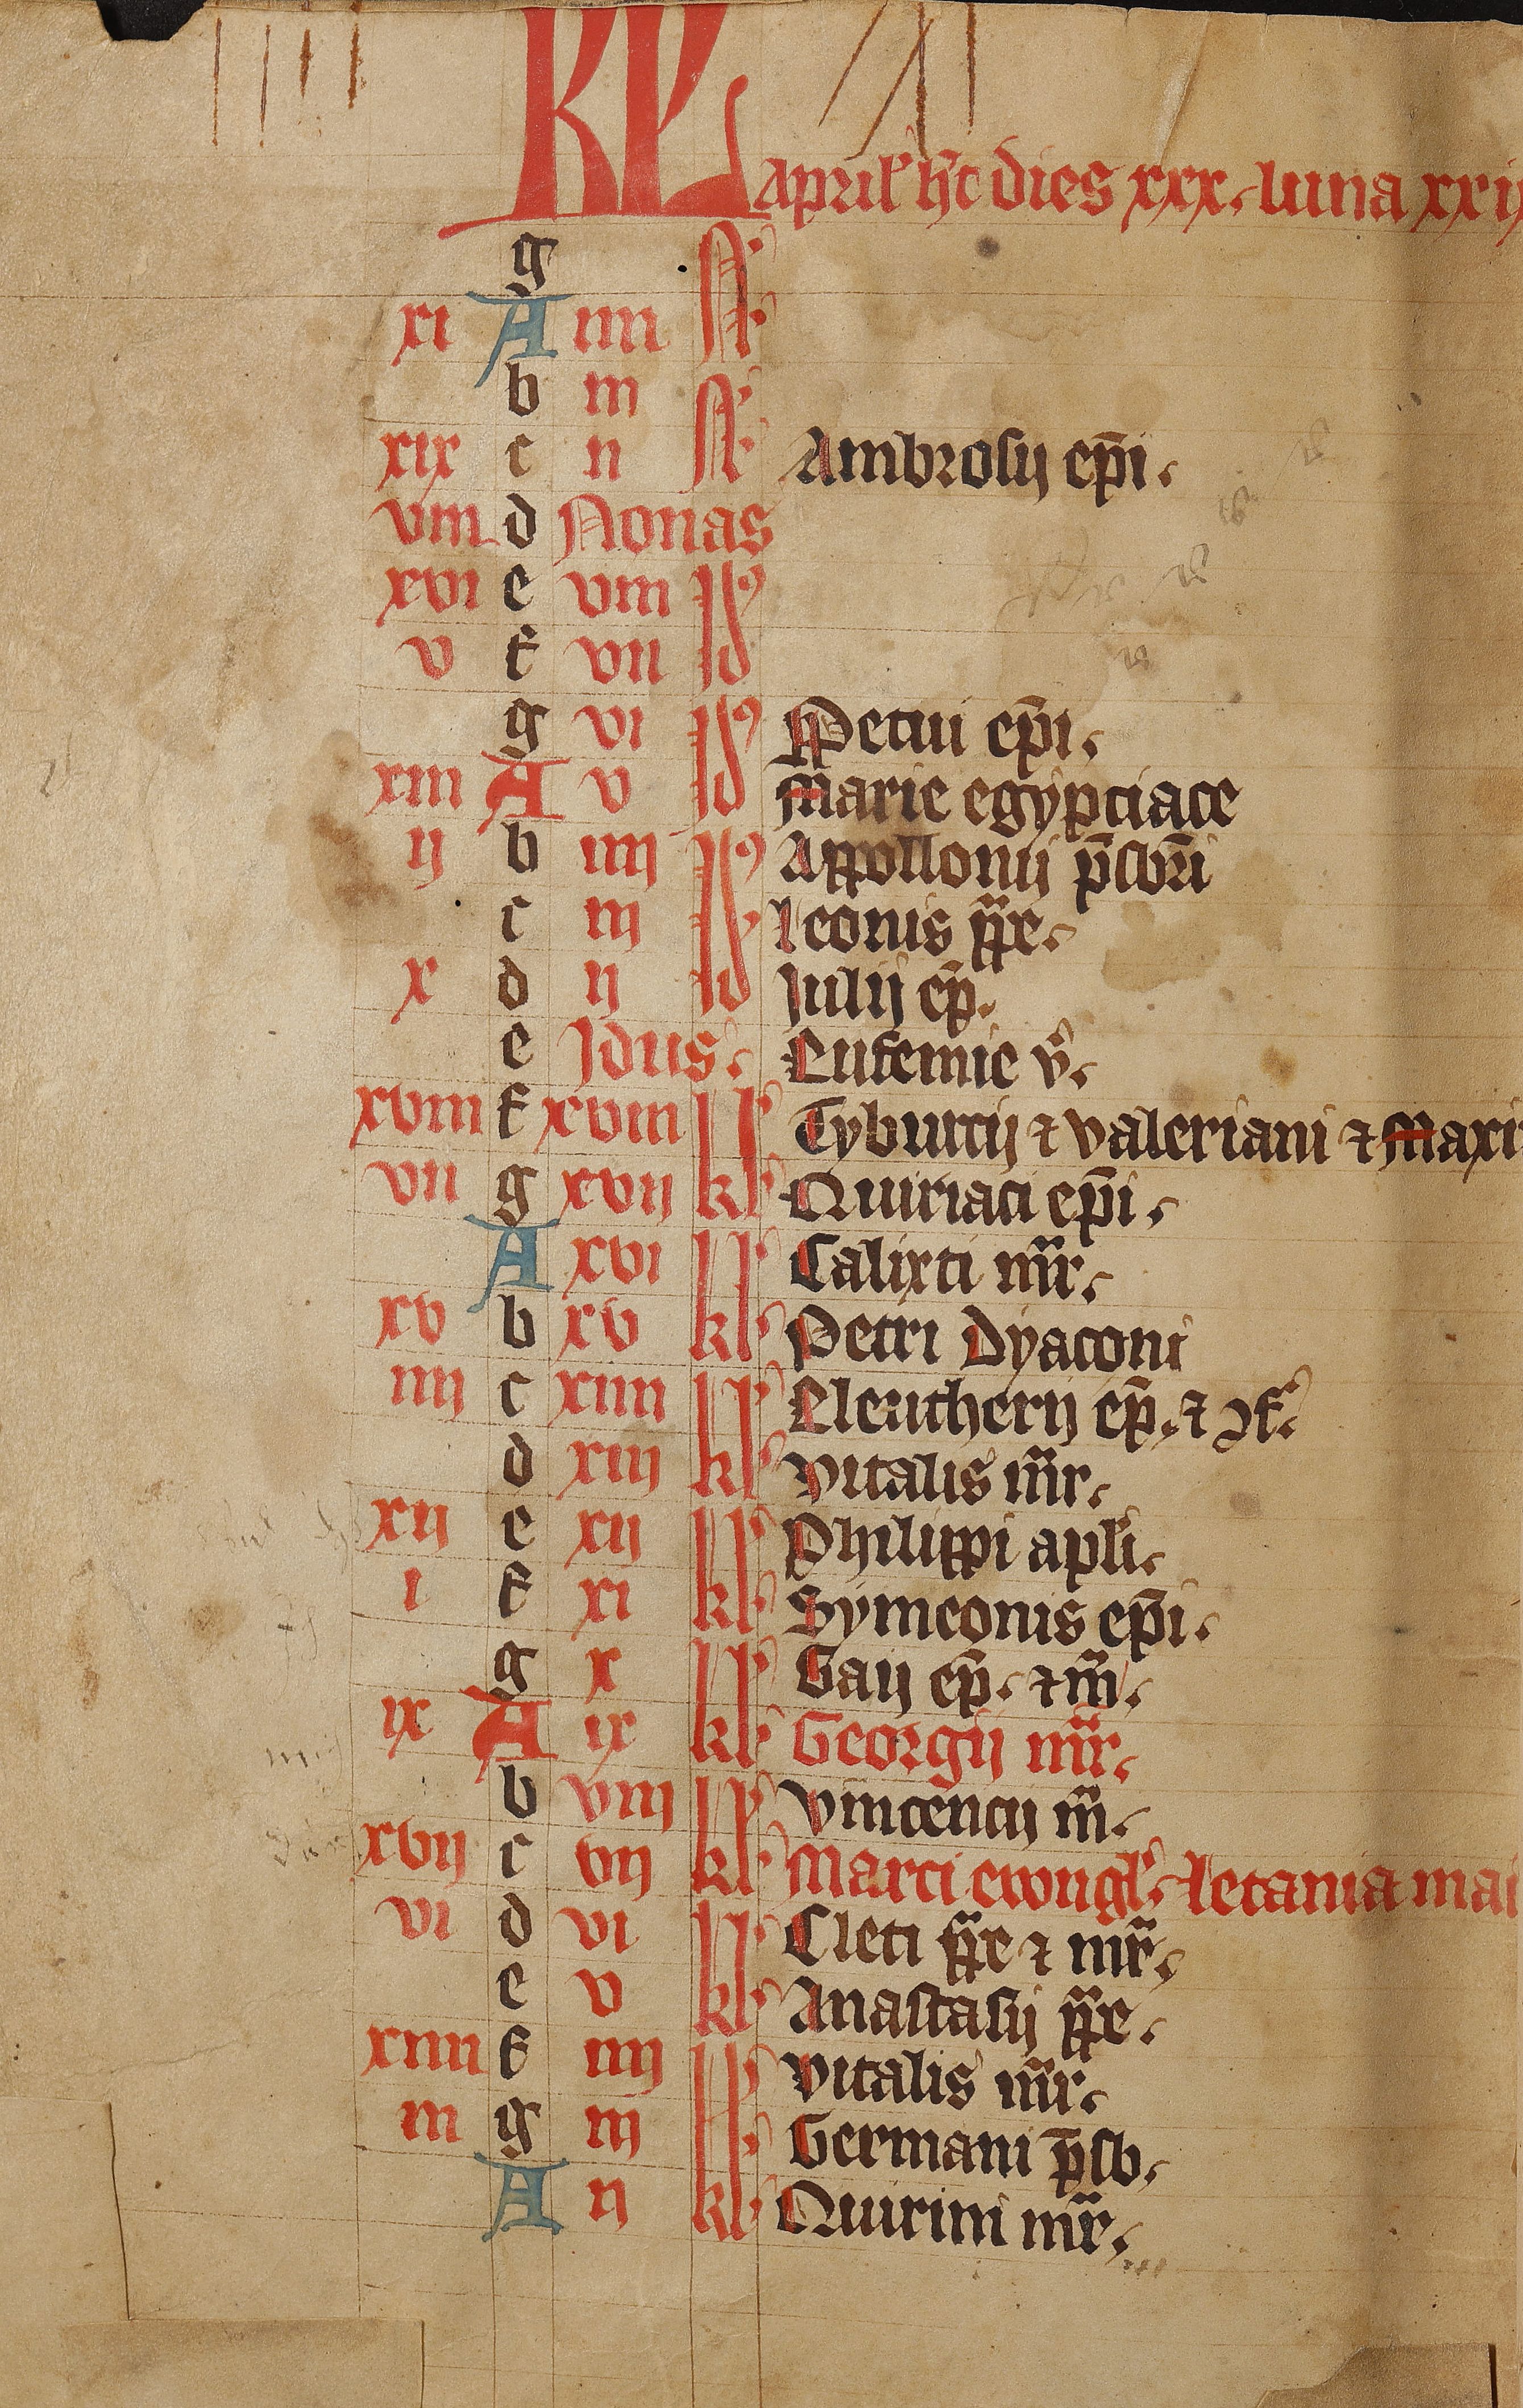 KL April' h'c dies xxx. luna xxix
g
xi A iiii N
b iii
xix c ii N Ambrosij ep̄i.
viii d Nonas
xvi e viii Id
v f vii Id
g vi Id Ꝑpetui ep̄i.
xiii A v Id Marie egypciace
ij b iiij Id Appollonij p̄sbri
c iij Id Leonis ppe.
x d ij Id Julij ep̄.
e Idus. Eufemie v̄.
xviii f xviii kl Tyburcij ⁊ valeriani ⁊ Maxi
vii g xvij kl Quiriaci ep̄i.
A xvi kl Calixti mr̄.
xv b xv kl Petri Dyaconi
iiij c xiiii kl Eleutherij ep̄. ⁊
d xiij kl Vitalis mr̄.
xij e xij kl Philippi apl̄i.
i f xi kl Symeonis ep̄i.
g x kl Gaij ep̄. ⁊ m̄.
ix A ix kl Georgij mr̄.
b viij kl Vincencij m̄.
xvij c vij kl Marci ewangl'. letania mai
vi d vi kl Cleti ppe ⁊ mr̄.
e v kl Anastasij ppe.
xiiii f iiij kl Vitalis mr̄.
iii g iij kl Germani p̄sb.
A ij kl Quirini mr̄.